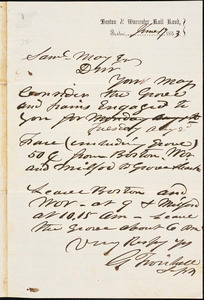 Boston & Worcester Rail Road,
Boston, June 17 1863
Saml. May Jr
Dear
Your May
Consider the Grove
and trains Engaged to
you for Monday Aug
Tuesday Aug
Fare (including Grove)
50¢ from Boston, Wor
and Milford to Grove & back
Leave Boston and
Wor - at 9 & Milford
at 10.15 Am - Leave
the Grove about 6
Very Resfy Yrs
G Twichell